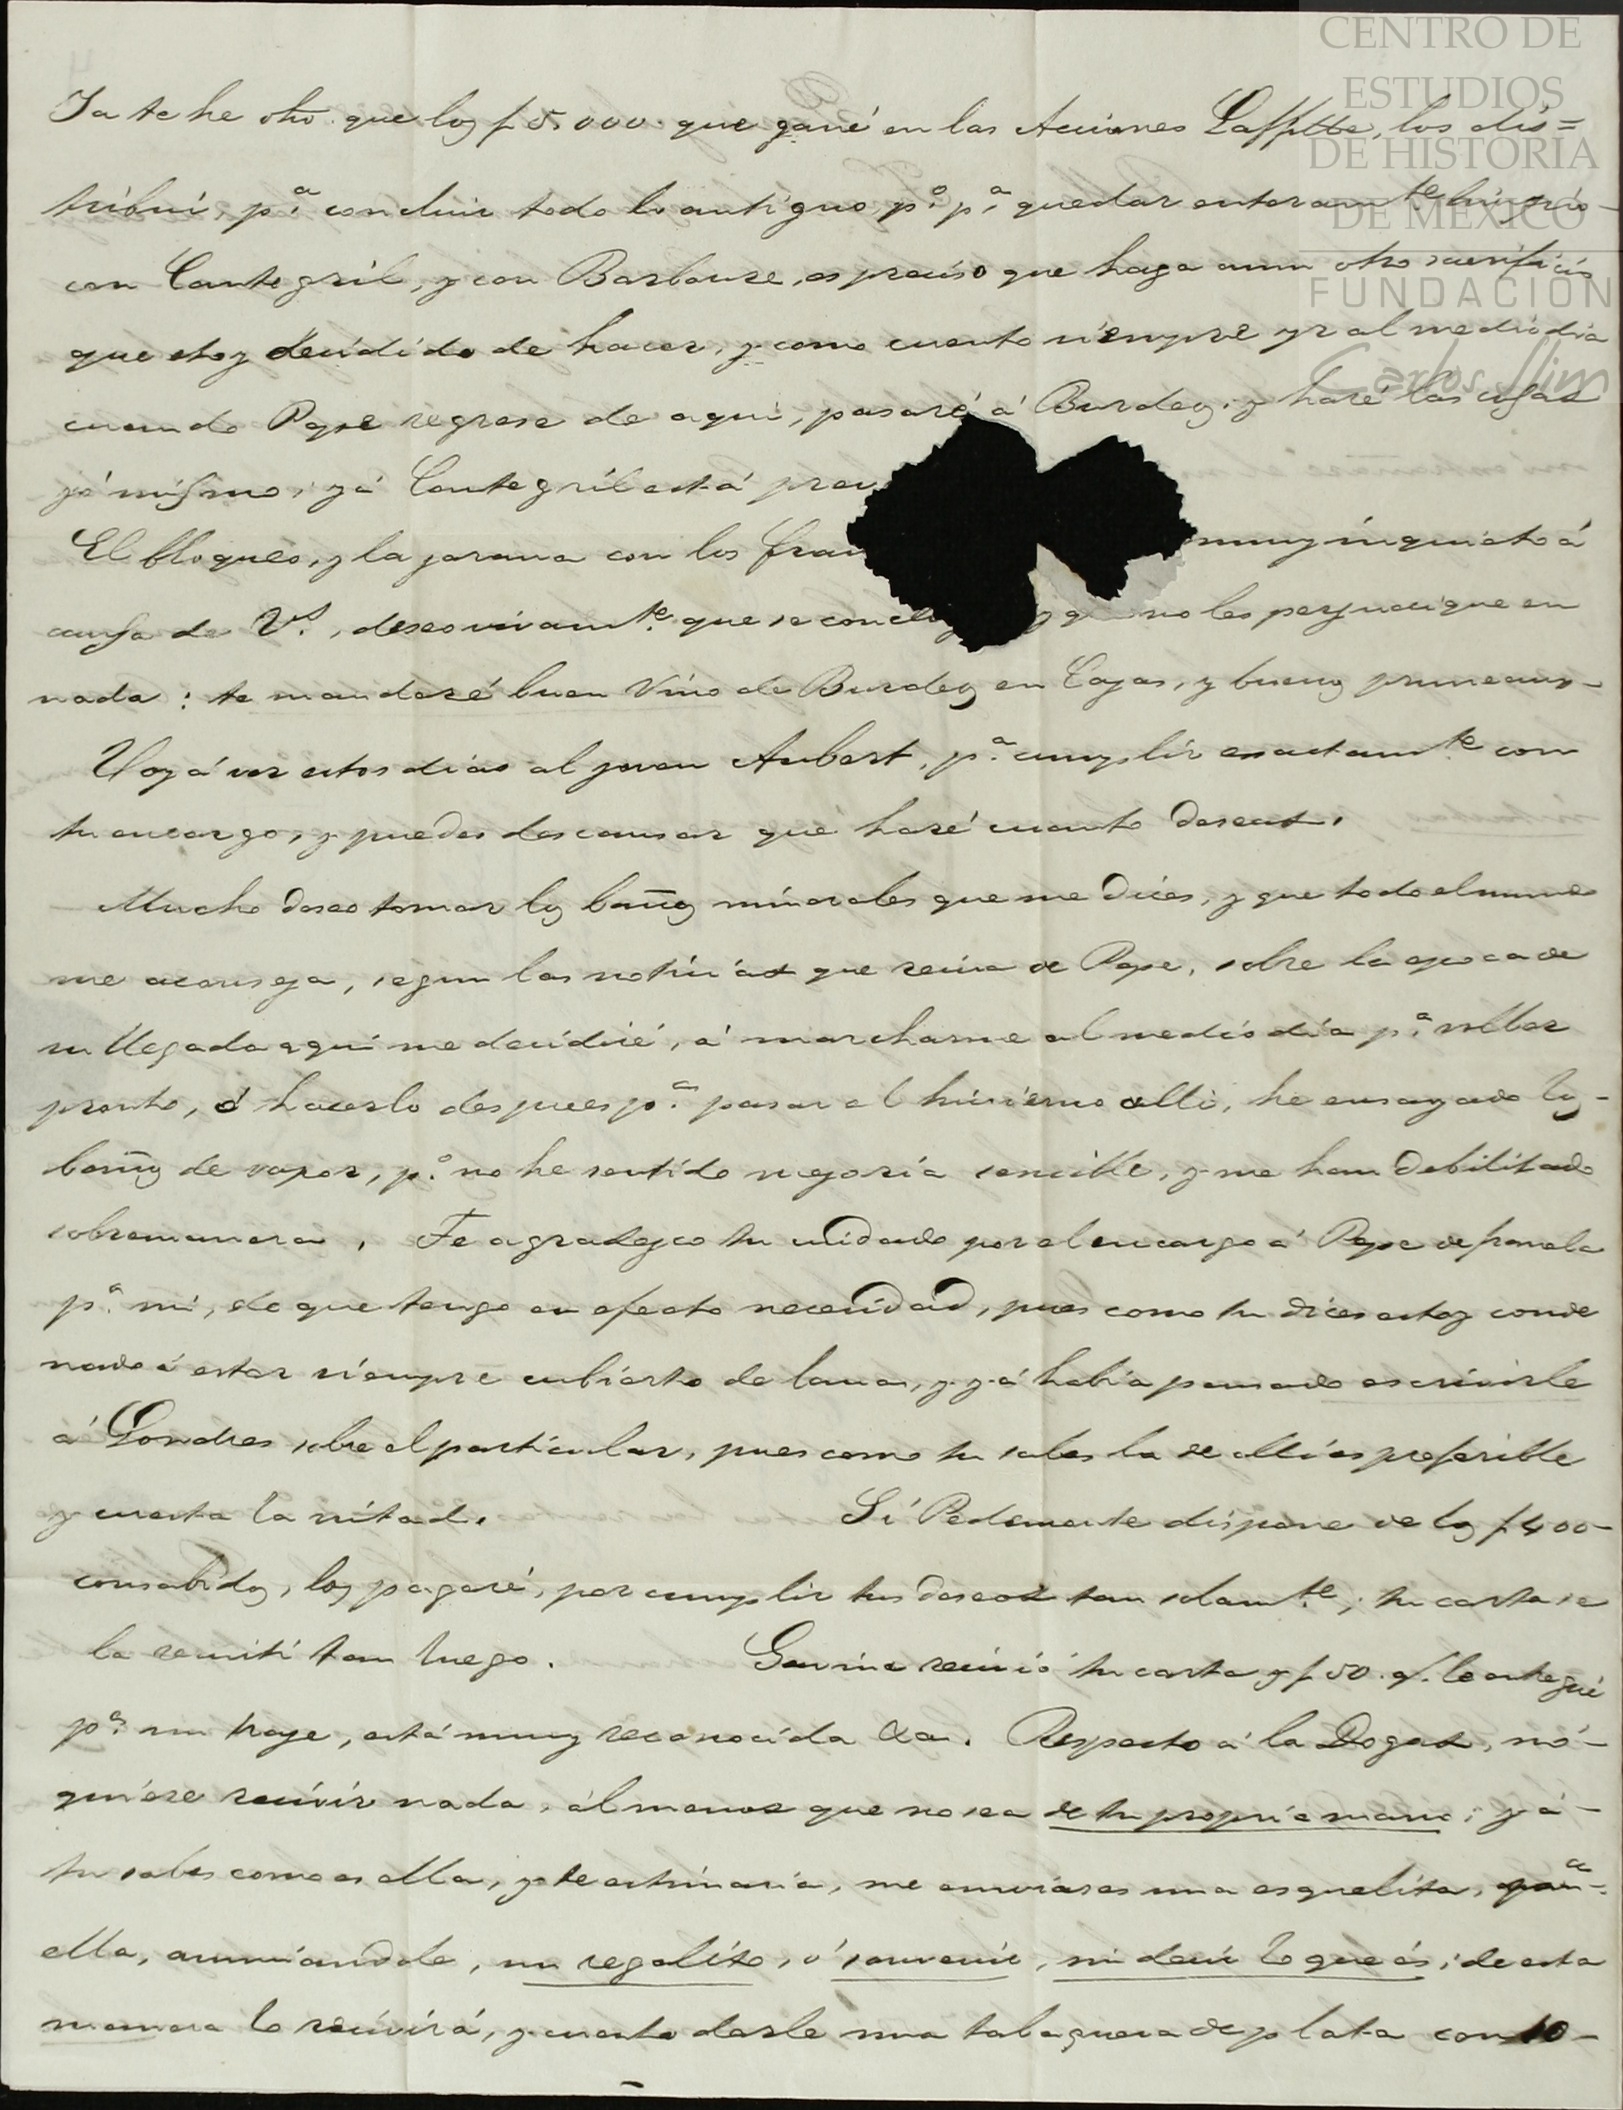 CENTRO DE
ESTUDIOS
DE HISTORIA
DE MÉXICO
FUNDACIÓN
Carlos Slim
Ya te he dho. que los f 5.000. que gané en las Acciones Laffitte, los dis=
tribui, p.ª concluir todo lo antiguo, p.º p.ª quedar enteram.te
con Cantegril, y con Barbouse, es preciso que haga aun otro sacrificio
que estoy decidido de hacer, y como cuento siempre yr al mediodia
cuando Pepe regrese de aqui, pasaré á Burdeos, y haré las cosas
yó mismo, yá Cantegril está prev
El bloqueo, y la jarana con los fran muy inquieto á
causa de V.s, deseo vivam.te que se concluy y q no les perjudique en
nada: te mandaré buen Vino de Burdeos en Cajas, y buenos pruneaux-
Voy á ver estos dias al joven Aubert, p.ª cumplir exactam.te con
tu encargo, y puedes descansar que haré cuanto deseas.
Mucho deseo tomar los baños minerales que me dices, y que todo el mundo
me aconseja, segun las noticias que reciva de Pepe, sobre la epoca de
su llegada aqui me decidiré, á marcharme al mediodia p.ª volber
pronto, ó hacerlo despues p.ª pasar el hivierno alli, he ensayado los-
baños de vapor, p.º no he sentido mejoria sencible, y me han debilitado
sobremanera. Te agradezco tu cuidado por el encargo á Pepe de franela
p.ª mi, de que tengo en efecto necesidad, pues como tu dices estoy conde
nado á estar siempre cubierto de lana, y yá habia pensado escrivirle
á Londres sobre el particular, pues como tu sabes la de alli es preferible
y cuesta la mitad. Si Pedemonte dispone de los f 400-
consabidos, los pagaré, por cumplir tus deseos tan solam.te, tu carta se
la remiti tan luego. Gavina recivió tu carta y f 50. q.e le entregué
p.ª un traje, está muy reconocida &a. Respecto á la Dogas, nó-
quiere recivir nada, al menos que no sea de tu propria mano; yá-
tu sabes como es ella, y te estimaria, me enviases una esquelita, p.ª
ella, anunciandole, un regalito, ó souvenir, sin decir lo que és, de esta
manera lo recivirá, y cuento darle una tabaquera de plata con 10-